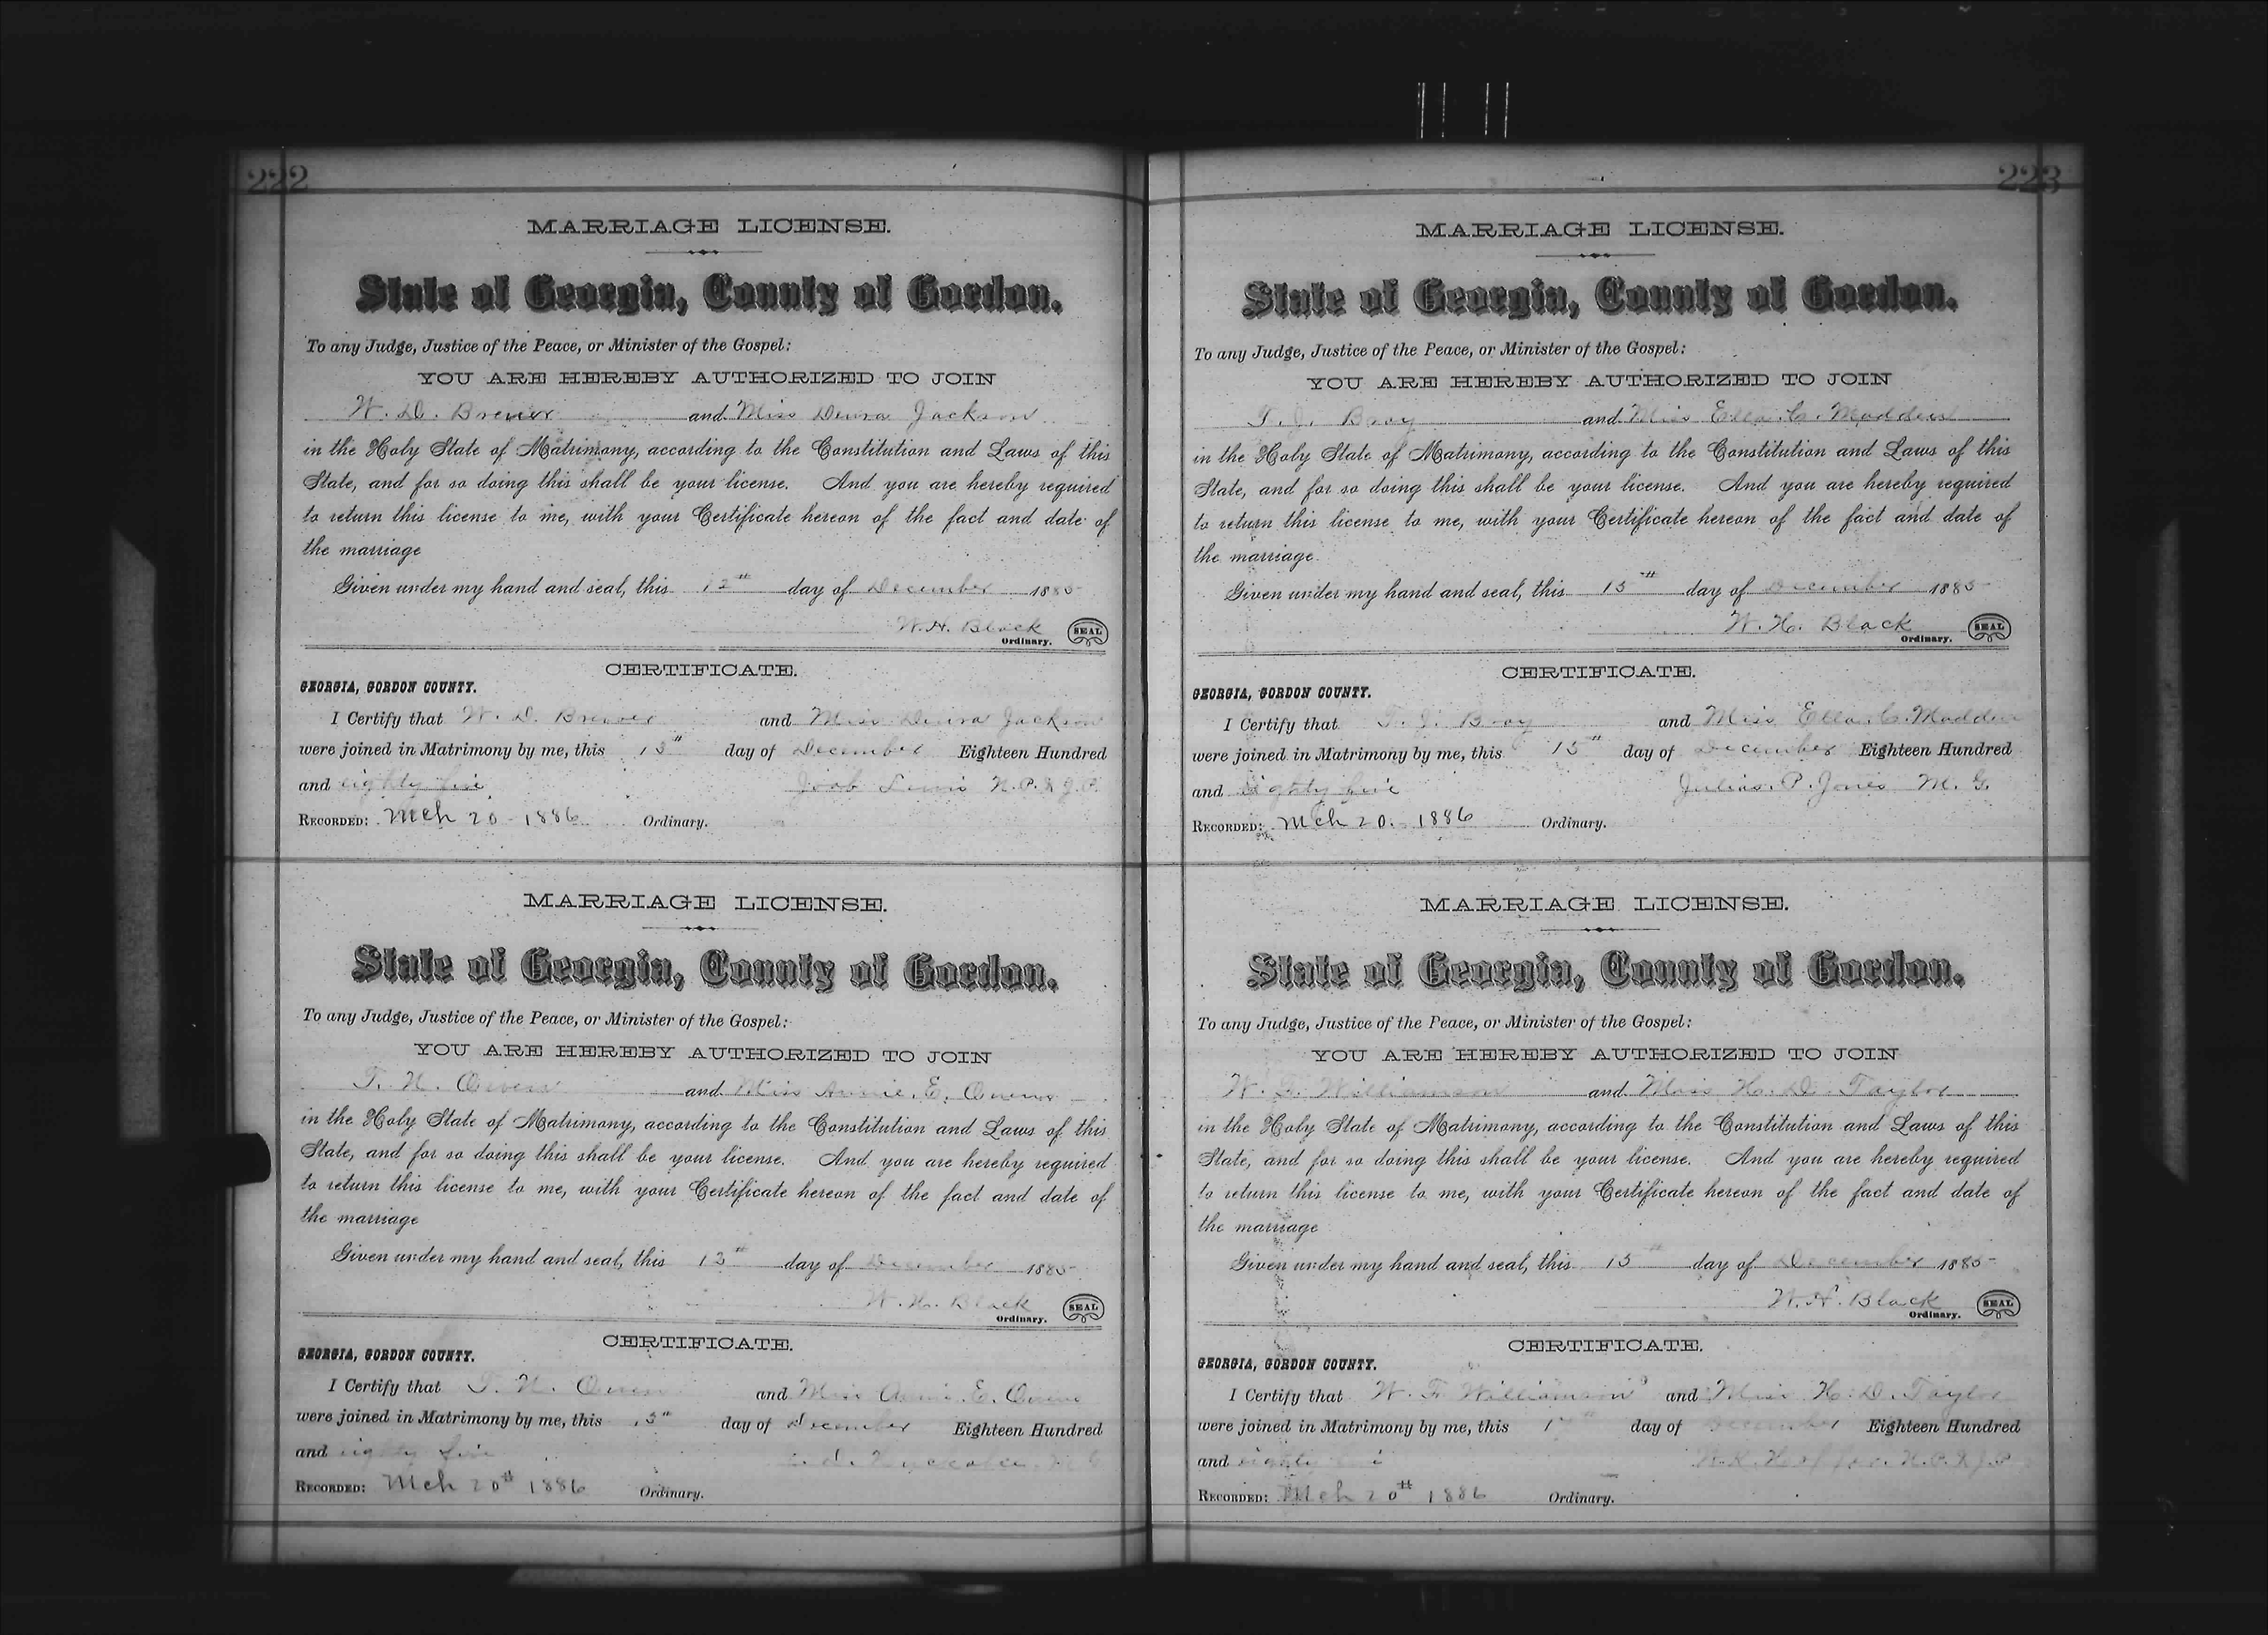 222
MARRIAGE LICENSE.
State of Georgia, County of Gordon.
To any Judge, Justice of the Peace, or Minister of the Gospel:
YOU ARE HEREBY AUTHORIZED TO JOIN
W. D. Brewer and Miss Jackson
in the Holy State of Matrimony, according to the Constitution and Laws of this
State, and for so doing this shall be your license. And you are hereby required
to return this license to me, with your Certificate hereon of the fact and date of
the marriage
Given under my hand and seal, this 12th day of December 1885
W. H. Black SEAL
Ordinary.
CERTIFICATE.
GEORGIA, GORDON COUNTY.
I Certify that W. D. Brewer and Miss Jackson
were joined in Matrimony by me, this 13th day of December Eighteen Hundred
and eighty five Lewis N.P. & J.P.
RECORDED: Mch 20 - 1886 Ordinary.
MARRIAGE LICENSE.
State of Georgia, County of Gordon.
To any Judge, Justice of the Peace, or Minister of the Gospel:
YOU ARE HEREBY AUTHORIZED TO JOIN
T. N. Owen and Miss Annie. E. Owens
in the Holy State of Matrimony, according to the Constitution and Laws of this
State, and for so doing this shall be your license. And you are hereby required
to return this license to me, with your Certificate hereon of the fact and date of
the marriage
Given under my hand and seal, this 13th day of December 1885
W. H. Black SEAL
Ordinary.
CERTIFICATE.
GEORGIA, GORDON COUNTY.
I Certify that T. N. Owen and Miss Annie. E. Owens
were joined in Matrimony by me, this day of December Eighteen Hundred
and eighty five
RECORDED: Mch 20th 1886 Ordinary.
223
MARRIAGE LICENSE.
State of Georgia, County of Gordon.
To any Judge, Justice of the Peace, or Minister of the Gospel:
YOU ARE HEREBY AUTHORIZED TO JOIN
T. J. Bray and Miss Ella. C. Madden
in the Holy State of Matrimony, according to the Constitution and Laws of this
State, and for so doing this shall be your license. And you are hereby required
to return this license to me, with your Certificate hereon of the fact and date of
the marriage
Given under my hand and seal, this 15th day of December 1885
W. H. Black SEAL
Ordinary.
CERTIFICATE.
GEORGIA, GORDON COUNTY.
I Certify that T. J. Bray and Miss Ella. C. Madden
were joined in Matrimony by me, this 15th day of December Eighteen Hundred
and Eighty five Julius. P. Jones M. G.
RECORDED: Mch 20. 1886 Ordinary.
MARRIAGE LICENSE.
State of Georgia, County of Gordon.
To any Judge, Justice of the Peace, or Minister of the Gospel:
YOU ARE HEREBY AUTHORIZED TO JOIN
W. F. Williamson and Miss H. D. Taylor
in the Holy State of Matrimony, according to the Constitution and Laws of this
State, and for so doing this shall be your license. And you are hereby required
to return this license to me, with your Certificate hereon of the fact and date of
the marriage
Given under my hand and seal, this 15th day of December 1885
W. H. Black SEAL
Ordinary.
CERTIFICATE.
GEORGIA, GORDON COUNTY.
I Certify that W. F. Williamson and Miss H. D. Taylor
were joined in Matrimony by me, this day of December Eighteen Hundred
and eighty N.P. & J.P.
RECORDED: Mch 20th 1886 Ordinary.